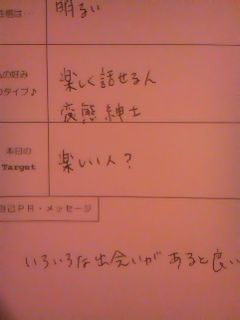 性格は…
明るい
の好み
タイプ♪
楽しく話せる人
変態紳士
本日の
Target
楽しい人？
自己PR・メッセージ
いろいろな出会いがあると良い